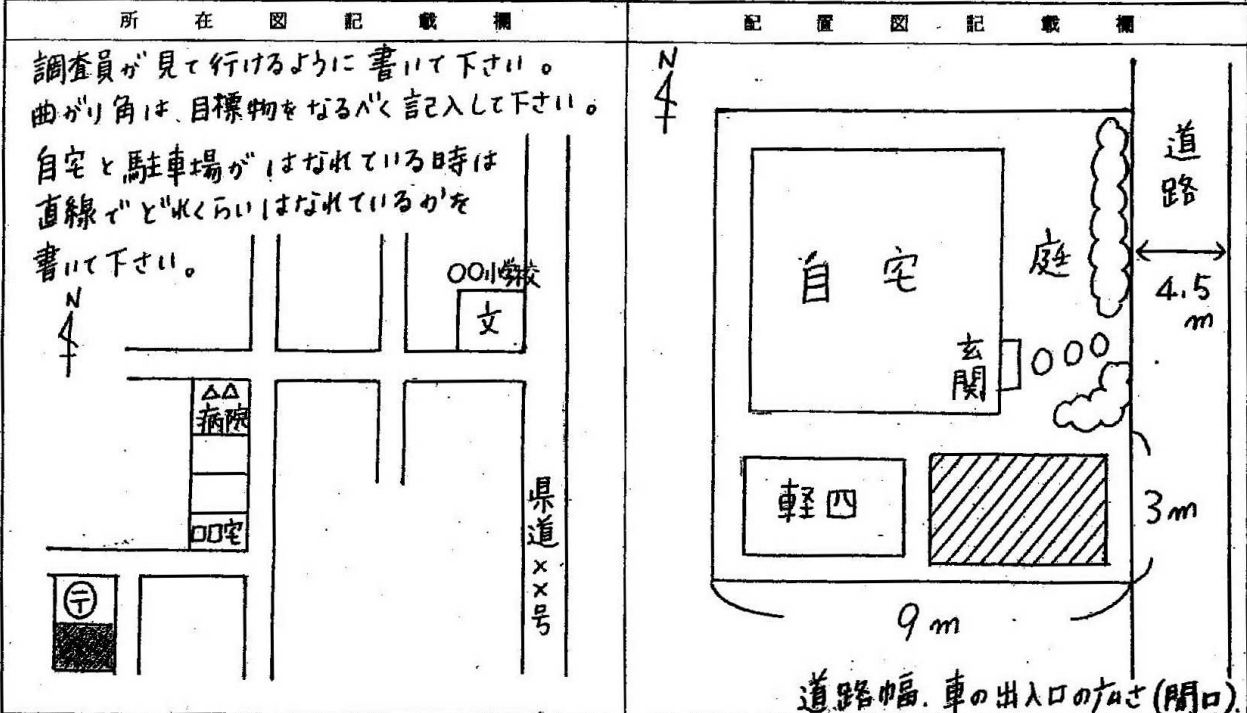 所在図記載欄
調査員が見て行けるように書いて下さい。
曲がり角は、目標物をなるべく記入して下さい。
自宅と駐車場がはなれている時は
直線でどれくらいはなれているかを
書いて下さい。
N
〇〇小学校
文
△△
病院
□□宅
〒
県道××号
配置図記載欄
N
自宅
庭
玄関
道路
4.5
m
軽四
3m
9m
道路幅、車の出入口の広さ(間口)、